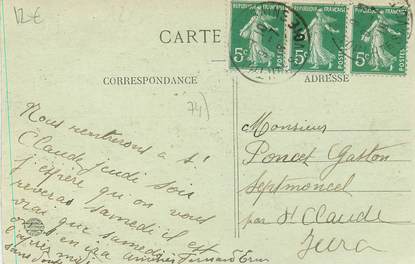 12€
CARTE
REPUBLIQUE FRANÇAISE
REPUBLIQUE FRANÇAISE
REPUBLIQUE FRANÇAISE
5c POSTES
5c POSTES
5c POSTES
CORRESPONDANCE
ADRESSE
74)
Nous rentrerons a St
Claude jeudi soir
j'espère qu'on vous
reverra samedi il est
vrai que samedi
on s'en ira
sans
Monsieur
Poncet Gaston
Septmoncel
par St Claude
Jura